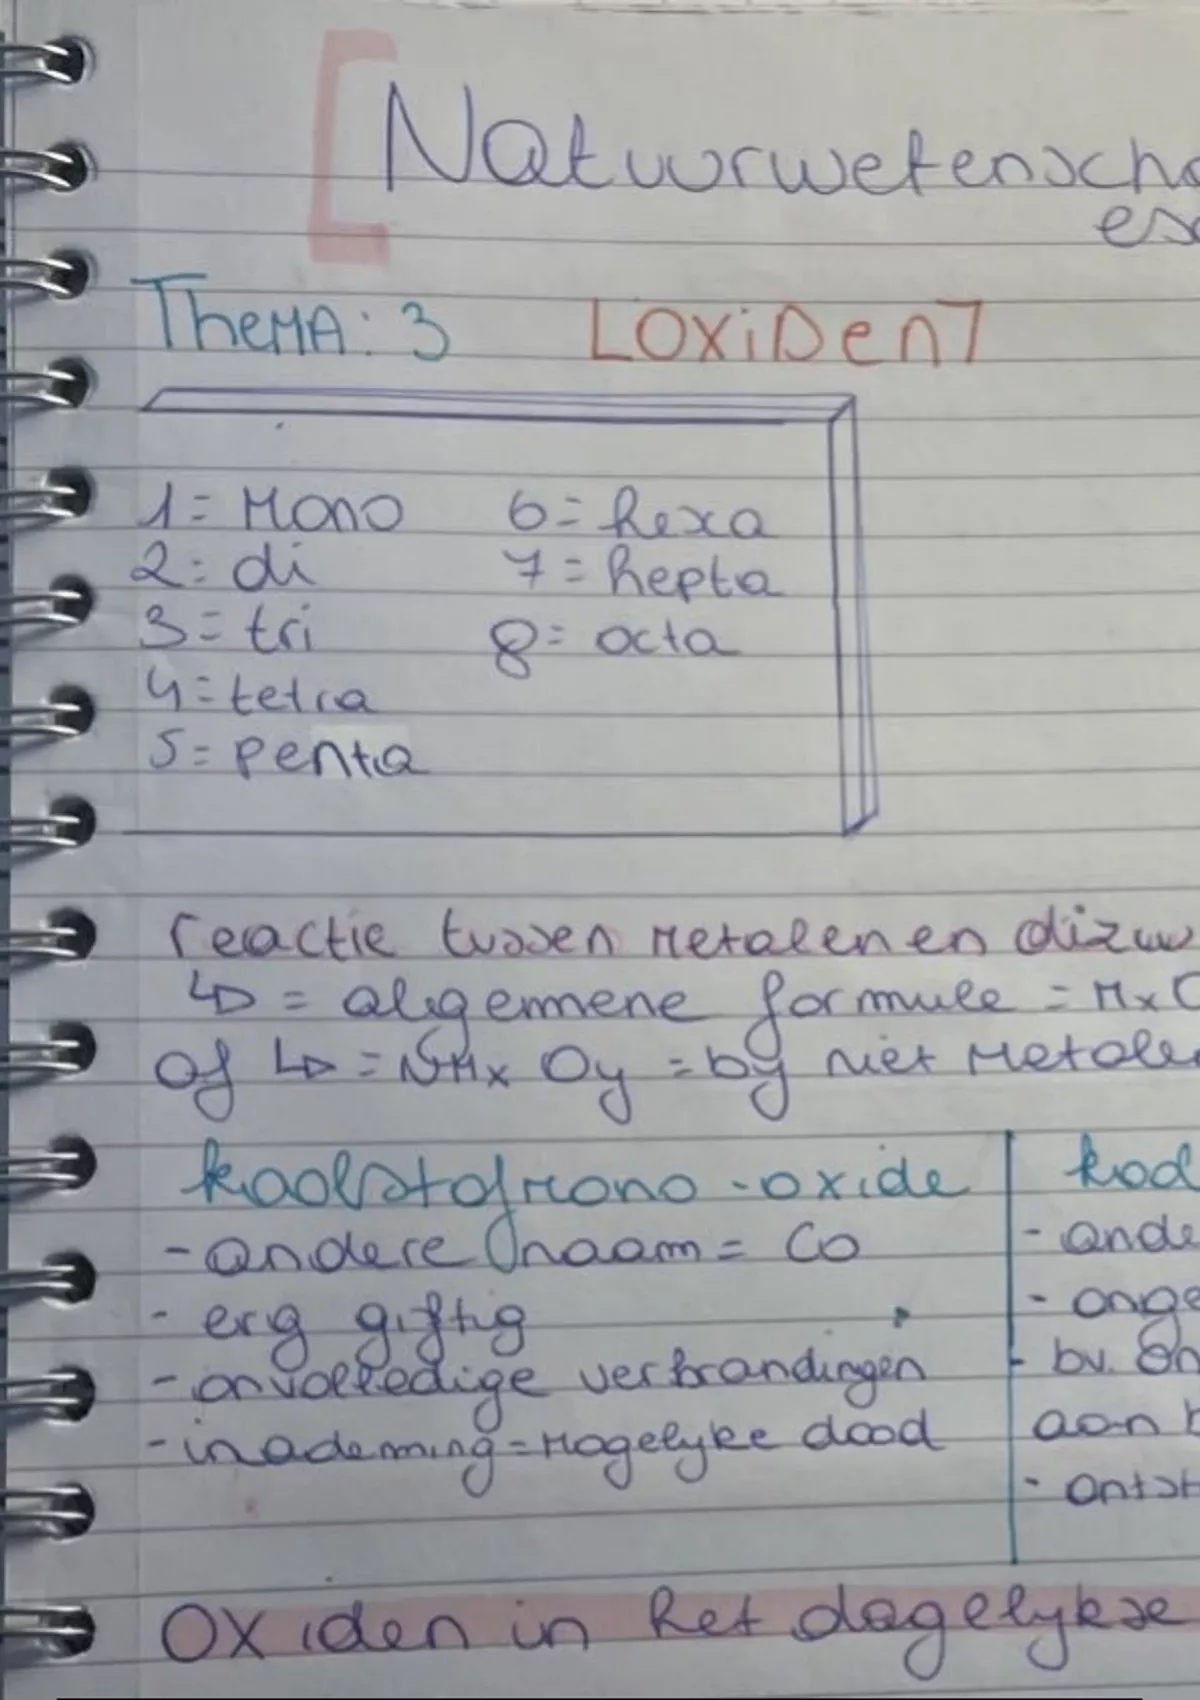 [Natuurwetensch
es
Thema: 3 [Oxiden]
1 = Mono 6 = hexa
2 = di 7 = hepta
3 = tri 8 = octa
4 = tetra
5 = penta
reactie tussen Metalen en dizuu
↳ = algemene formule = Mx
of ↳ = NMx Oy = by niet Metale
koolstofmono-oxide
- andere naam = CO
- erg giftig
- onvolledige verbrandingen
- inademing = Mogelyke dood
kool
- ande
- onge
- bv. on
aan
- ontst
Oxiden in het dagelykse